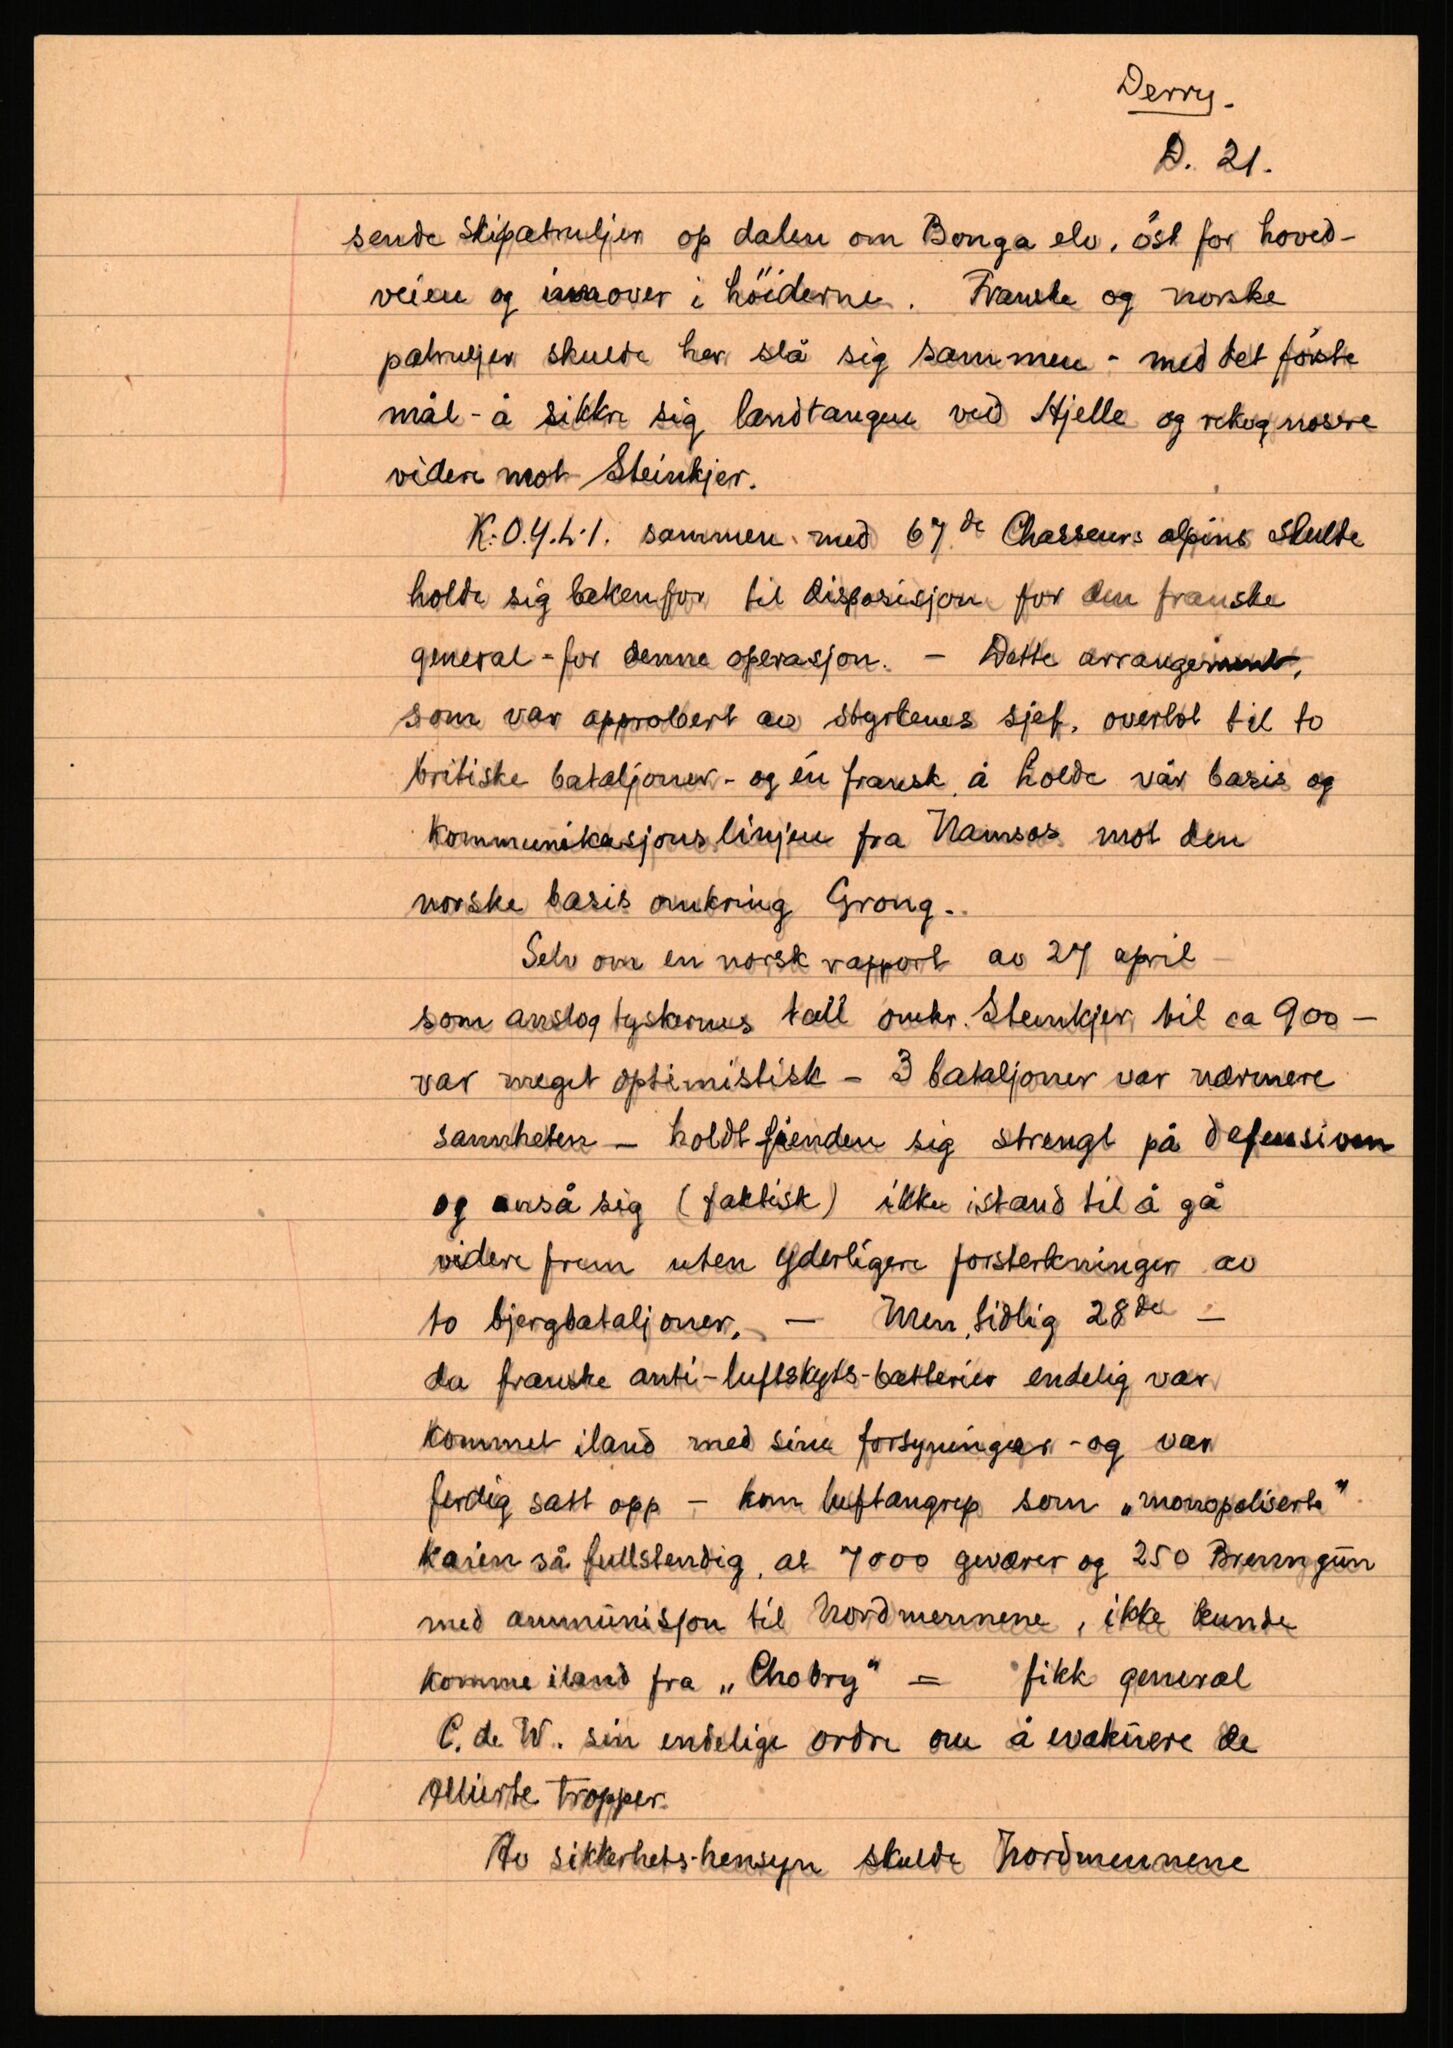 Derry.
D. 21.
sende skipatruljer op dalen om Bonga elv, öst for hoved-
veien og innover i höiderne. Franske og norske
patruljer skulde her slå sig sammen - med det förste
mål - å sikkre sig landtangen ved Hjelle og rekognosere
videre mot Steinkjer.
K.O.Y.L.I. sammen med 67de Chasseurs alpins skulde
holde sig bakenfor til disposisjon for den franske
general - for denne operasjon. — Dette arrangement,
som var approbert av styrkenes sjef, overlot til to
britiske bataljoner - og én fransk, å holde vår basis og
kommunikasjonslinjen fra Namsos mot den
norske basis omkring Grong.
Selv om en norsk rapport av 27 april —
som anslog tyskernes tall omkr. Steinkjer til ca 900 —
var meget optimistisk — 3 bataljoner var nærmere
sannheten — holdt fienden sig strengt på defensiven
og anså sig (faktisk) ikke istand til å gå
videre frem uten yderligere forsterkninger av
to bjergbataljoner. — Men, tidlig 28de —
da franske anti-luftskyts-batterier endelig var
kommet iland med sine forsyninger - og var
ferdig satt opp — kom luftangrep som „monopoliserte"
kaien så fullstendig, at 7000 geværer og 250 Brenngun
med ammunisjon til Nordmennene, ikke kunde
komme iland fra „Chobry" = fikk general
C. de W. sin endelige ordre om å evakuere de
Allierte tropper.
Av sikkerhets-hensyn skulde Nordmennene